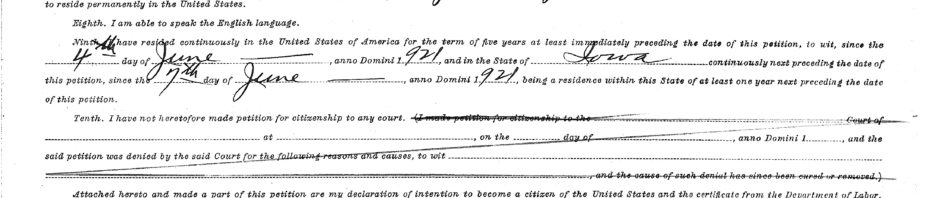 to reside permanently in the United States.
Eighth. I am able to speak the English language.
Ninth. I have resided continuously in the United States of America for the term of five years at least immediately preceding the date of this petition, to wit, since the
4th day of June, anno Domini 1921, and in the State of Iowa continuously next preceding the date of
this petition, since the 7th day of June, anno Domini 1921, being a residence within this State of at least one year next preceding the date
of this petition.
Tenth. I have not heretofore made petition for citizenship to any court. (I made petition for citizenship to the Court of
at, on the day of, anno Domini 1, and the
said petition was denied by the said Court for the following reasons and causes, to wit
, and the cause of such denial has since been cured or removed.)
Attached hereto and made a part of this petition are my declaration of intention to become a citizen of the United States and the certificate from the Department of Labor,